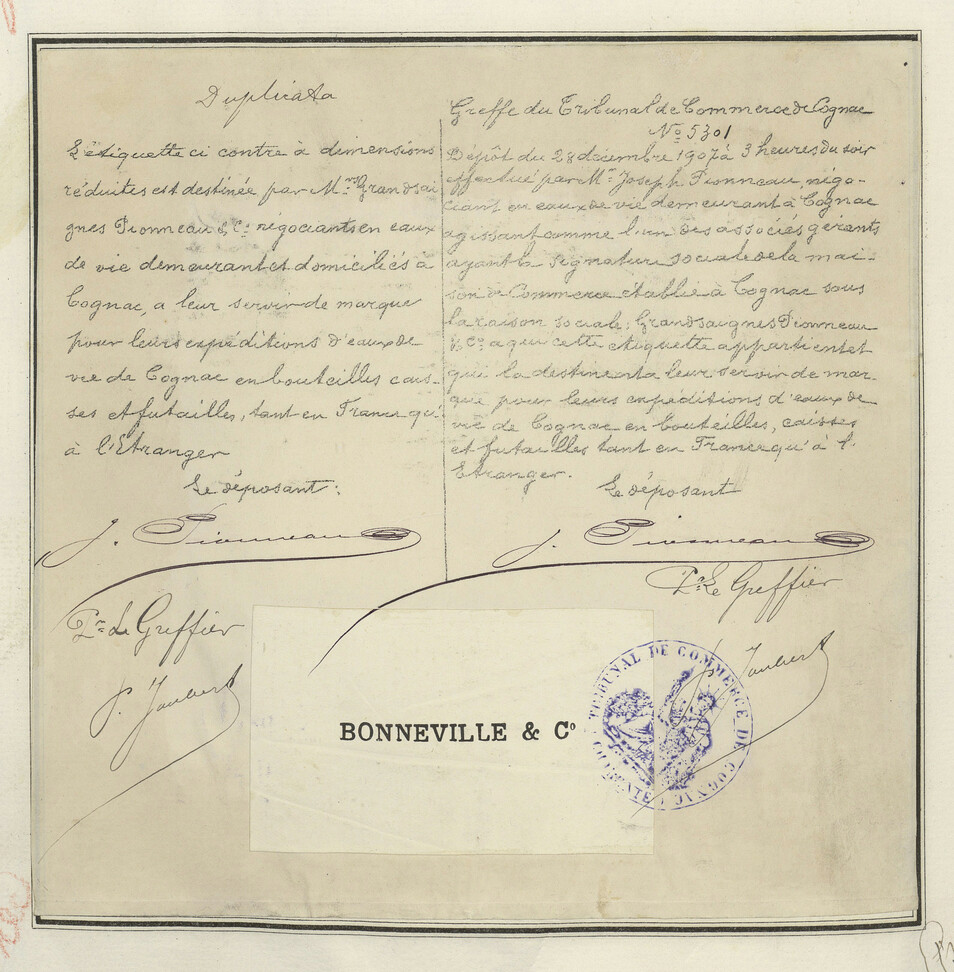 Duplicata
L'étiquette ci contre à dimensions
réduites est destinée par Mrs Grandsai
gnes Pionneau & Co négociants en eaux
de vie demeurant et domiciliés à
Cognac, a leur servir de marque
pour leurs expéditions d'eaux de
vie de Cognac en bouteilles cais-
ses et futailles, tant en France qu'
à l'Etranger
Le déposant:
J. Pionneau
Pr Le Greffier
P. Jaubert
Greffe du Tribunal de Commerce de Cognac
No 5301
Dépôt du 28 décembre 1907 à 3 heures du soir
effectué par Mr Joseph Pionneau, négo-
ciant en eaux de vie demeurant à Cognac
agissant comme l'un des associés gérants
ayant la signature sociale de la mai-
son de Commerce établie à Cognac sous
la raison sociale: Grandsaignes Pionneau
& Co a qui cette étiquette appartient et
qui la destinent a leur servir de mar-
que pour leurs expéditions d'eaux de
vie de Cognac en bouteilles, caisses
et futailles tant en France qu'à l'
Etranger.
Le déposant
J. Pionneau
Pr Le Greffier
P. Jaubert
BONNEVILLE & Co
TRIBUNAL DE COMMERCE DE COGNAC
CHARENTE